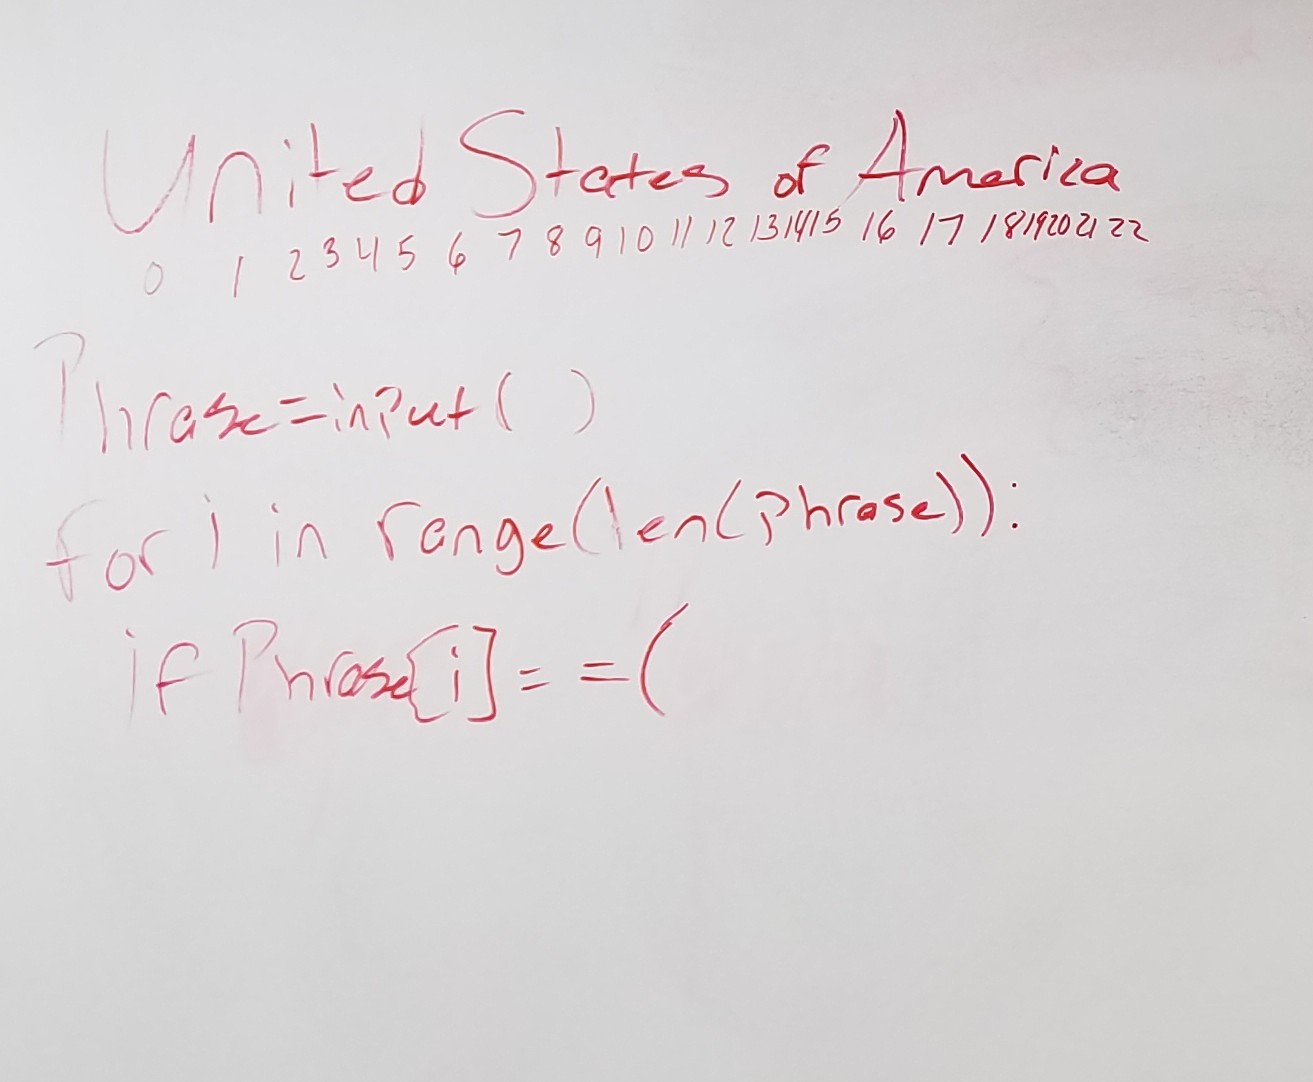 United States of America
0 1 2 3 4 5 6 7 8 9 10 11 12 13 14 15 16 17 18 19 20 21 22
Phrase=input( )
for i in range(len(Phrase)):
if Phrase[i]= =(